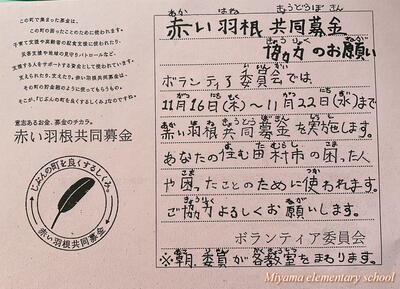 この町で集まった募金は、
この町の困ったことのために使われます。
子育て支援や高齢者の配食支援に使われたり、
災害支援や地域の見守りパトロールなど、
支援する人をサポートする資金として使われています。
支えられたり、支えたり。赤い羽根共同募金は、
その町の貯金箱のように使ってもらうもの。
そこが、「じぶんの町を良くするしくみ。」なのですね。
意志あるお金、募金のチカラ。
赤い羽根共同募金
じぶんの町を良くするしくみ。
赤い羽根共同募金
赤い羽根共同募金
協力のお願い
ボランティア委員会では
11月16日(木)～11月22日(水)まで
赤い羽根共同募金を実施します。
あなたの住む田村市の困った人
や困ったことのために使われます。
ご協力よろしくお願いします。
ボランティア委員会
※朝、委員が各教室をまわります。
Miyama elementary school